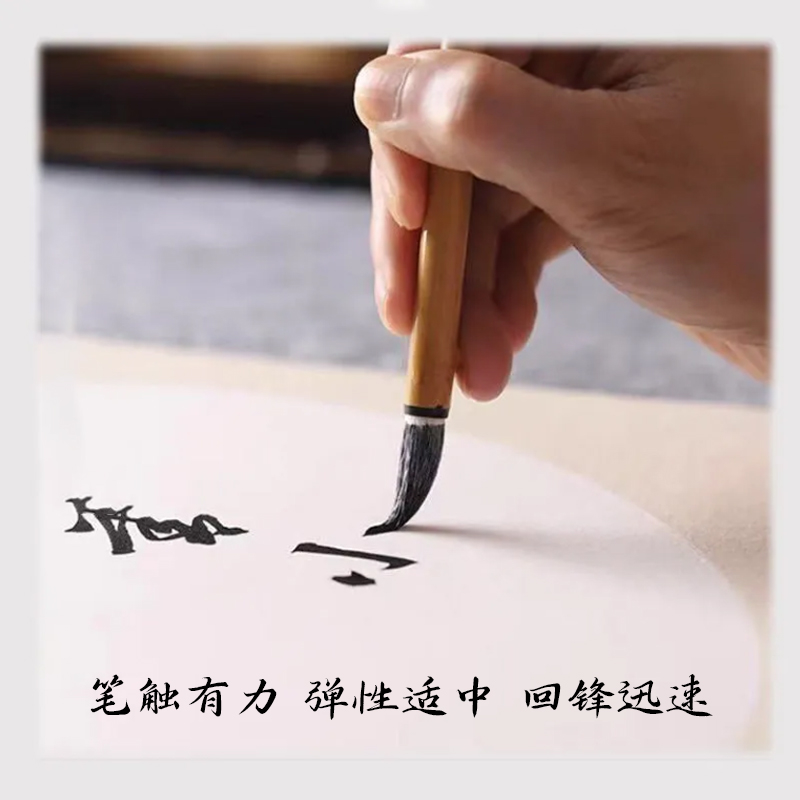 笔触有力 弹性适中 回锋迅速